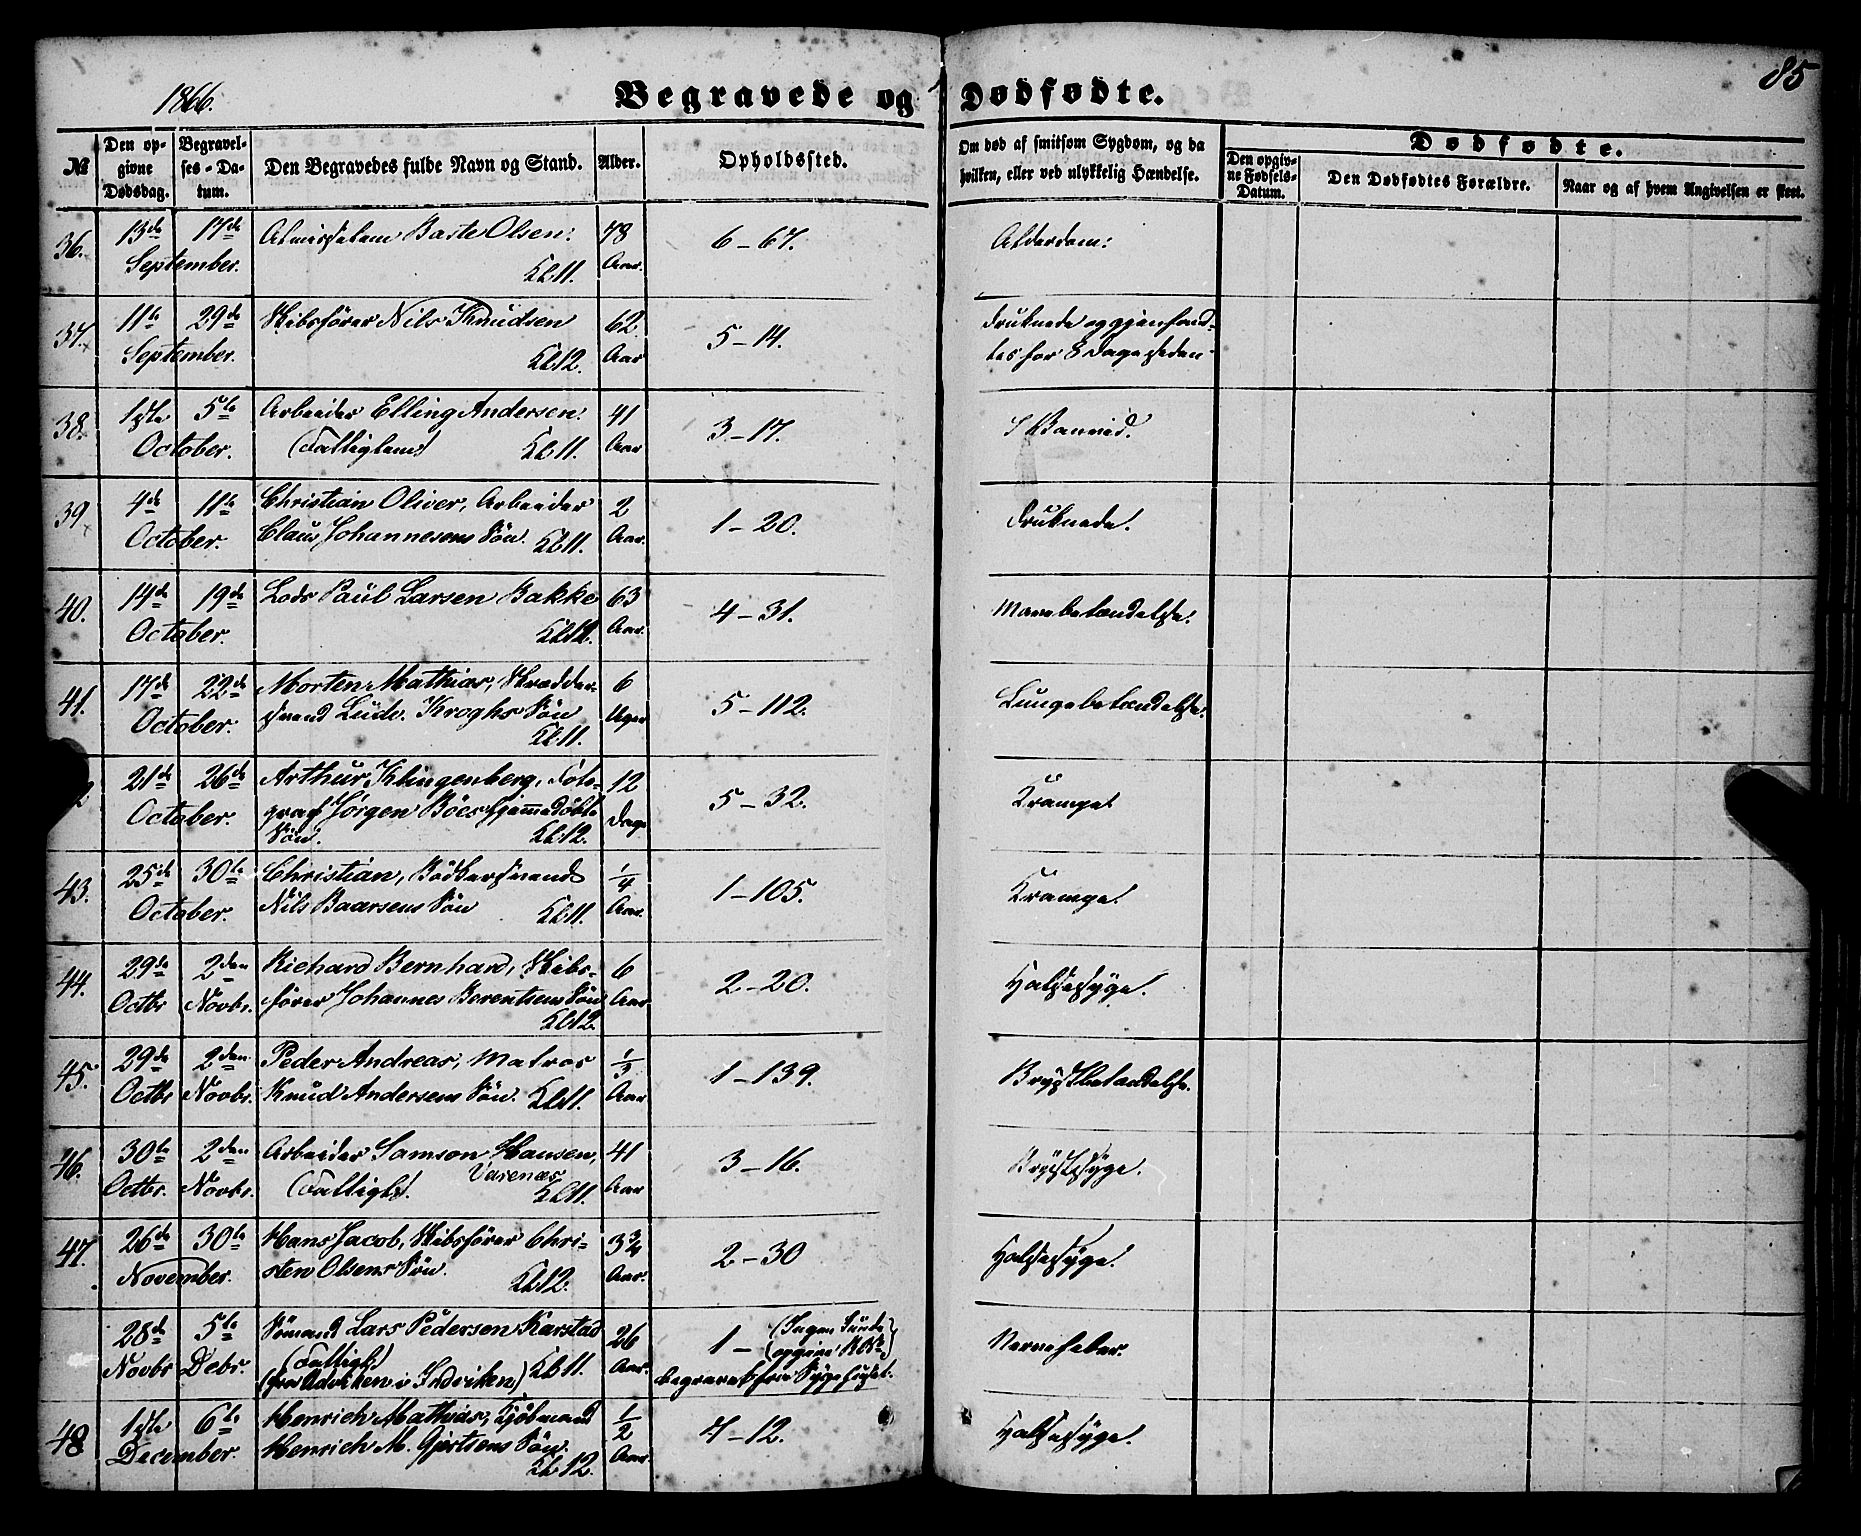 1866.
Begravede og Dødfødte.
85
№
Den op-
givne
Dødsdag.
Begravel-
ses-Da-
tum.
Den Begravedes fulde Navn og Stand.
Alder.
Opholdssted.
Om død af smitsom Sygdom, og da
hvilken, eller ved ulykkelig Hændelse.
Dødfødte.
Den opgiv-
ne Fødsels-
Datum.
Den Dødfødtes Forældre.
Naar og af hvem Angivelsen er skeet.
36.
13de 17de
September.
Almisselem Baste Olsen.
Kl. 11.
78
Aar.
6-67.
Alderdom.
37.
11te 29de
September.
Skibsfører Nils Knudsen
Kl. 12.
62
Aar
5-14.
Druknede og gjenfand-
tes for 8 Dage siden.
38.
1ste 5te
October.
Arbeider Elling Andersen.
(Fattiglem)
Kl. 11.
41
Aar
3-17.
39
4de 11te
October.
Christian Oliver, Arbeider
Claus Johannesens Søn. Kl. 11.
2
Aar.
1-20.
Druknede.
40.
14de 19de
October.
Lods Paul Larsen Bakke
Kl. 12.
63
Aar.
4-31.
Mavebetændelse.
41.
17de 22de
October.
Morten Mathias, Skrædder-
svend Ludv. Kroghs Søn
Kl. 11.
6
Uger
5-112.
Lungebetændelse.
2
21de 26de
October.
Arthur Klingenberg, Foto-
graf Jørgen Böes hjemmedøbte
Søn.
Kl. 12.
12
Dage
5-32.
Krampe
43.
25de 30te
October.
Christian, Bødkersvend
Nils Baarsens Søn
Kl. 11.
1/4
Aar.
1-105.
Krampe.
44.
29de 2den
Octbr Novbr.
Richard Bernhard, Skibs-
fører Johannes Berentsens Søn
Kl. 12.
6
Aar.
2-20.
Halsesyge.
45.
29de 2den
Octbr Novbr.
Peder Andreas, Matros
Knud Andersens Søn. Kl. 11.
1/3
Aar
1-139.
Brystbetændelse.
46.
30te 2den
Octbr. Novbr.
Arbeider Samson Hansen,
Varenæs
(Fattigl.)
Kl. 11.
41
Aar
3-16.
Brystsyge.
47.
26de 30te
November.
Hans Jacob, Skibsfører Chri-
sten Olsens Søn.
Kl. 12.
3 3/4
Aar.
2-30
Halsesyge.
28de 5te
Novbr Debr.
Sömand Lars Pedersen Karstad
(Fattigl.)
Kl. 11.
(fra Utvikken i Indviken)
26
Aar.
1-
(Ingen
opgivet
begravet fra Sygehuset.
Nervefeber.
48
1ste 6te
December.
Henrich Mathias, Kjøbmand
Henrich M. Gjertsens Søn.
Kl. 12.
1/2
Aar.
4-12.
Halsesyge.